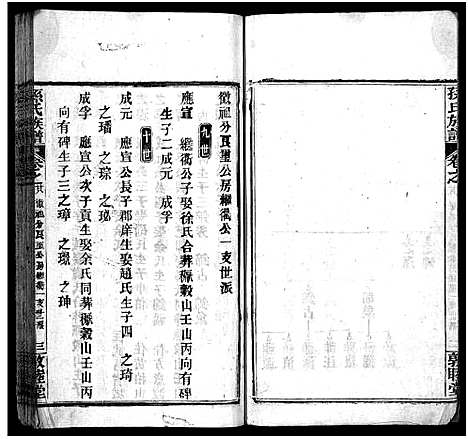 孫氏族譜
卷之
敦睦堂
徵祖分良聖公房繼衢公一支世派
九世
應宣 繼衢公子娶徐氏合葬㮤穀山壬山丙向有碑
生子二成元 成孚
十世
成元 應宣公長子郡庠生娶趙氏生子四 之琦
之璠 之琮 之珆
成孚 應宣公次子貢生娶余氏同葬㮤穀山壬山丙
向有碑生子三之璋 之璟 之珅
孫氏族譜
卷之
三敦睦堂